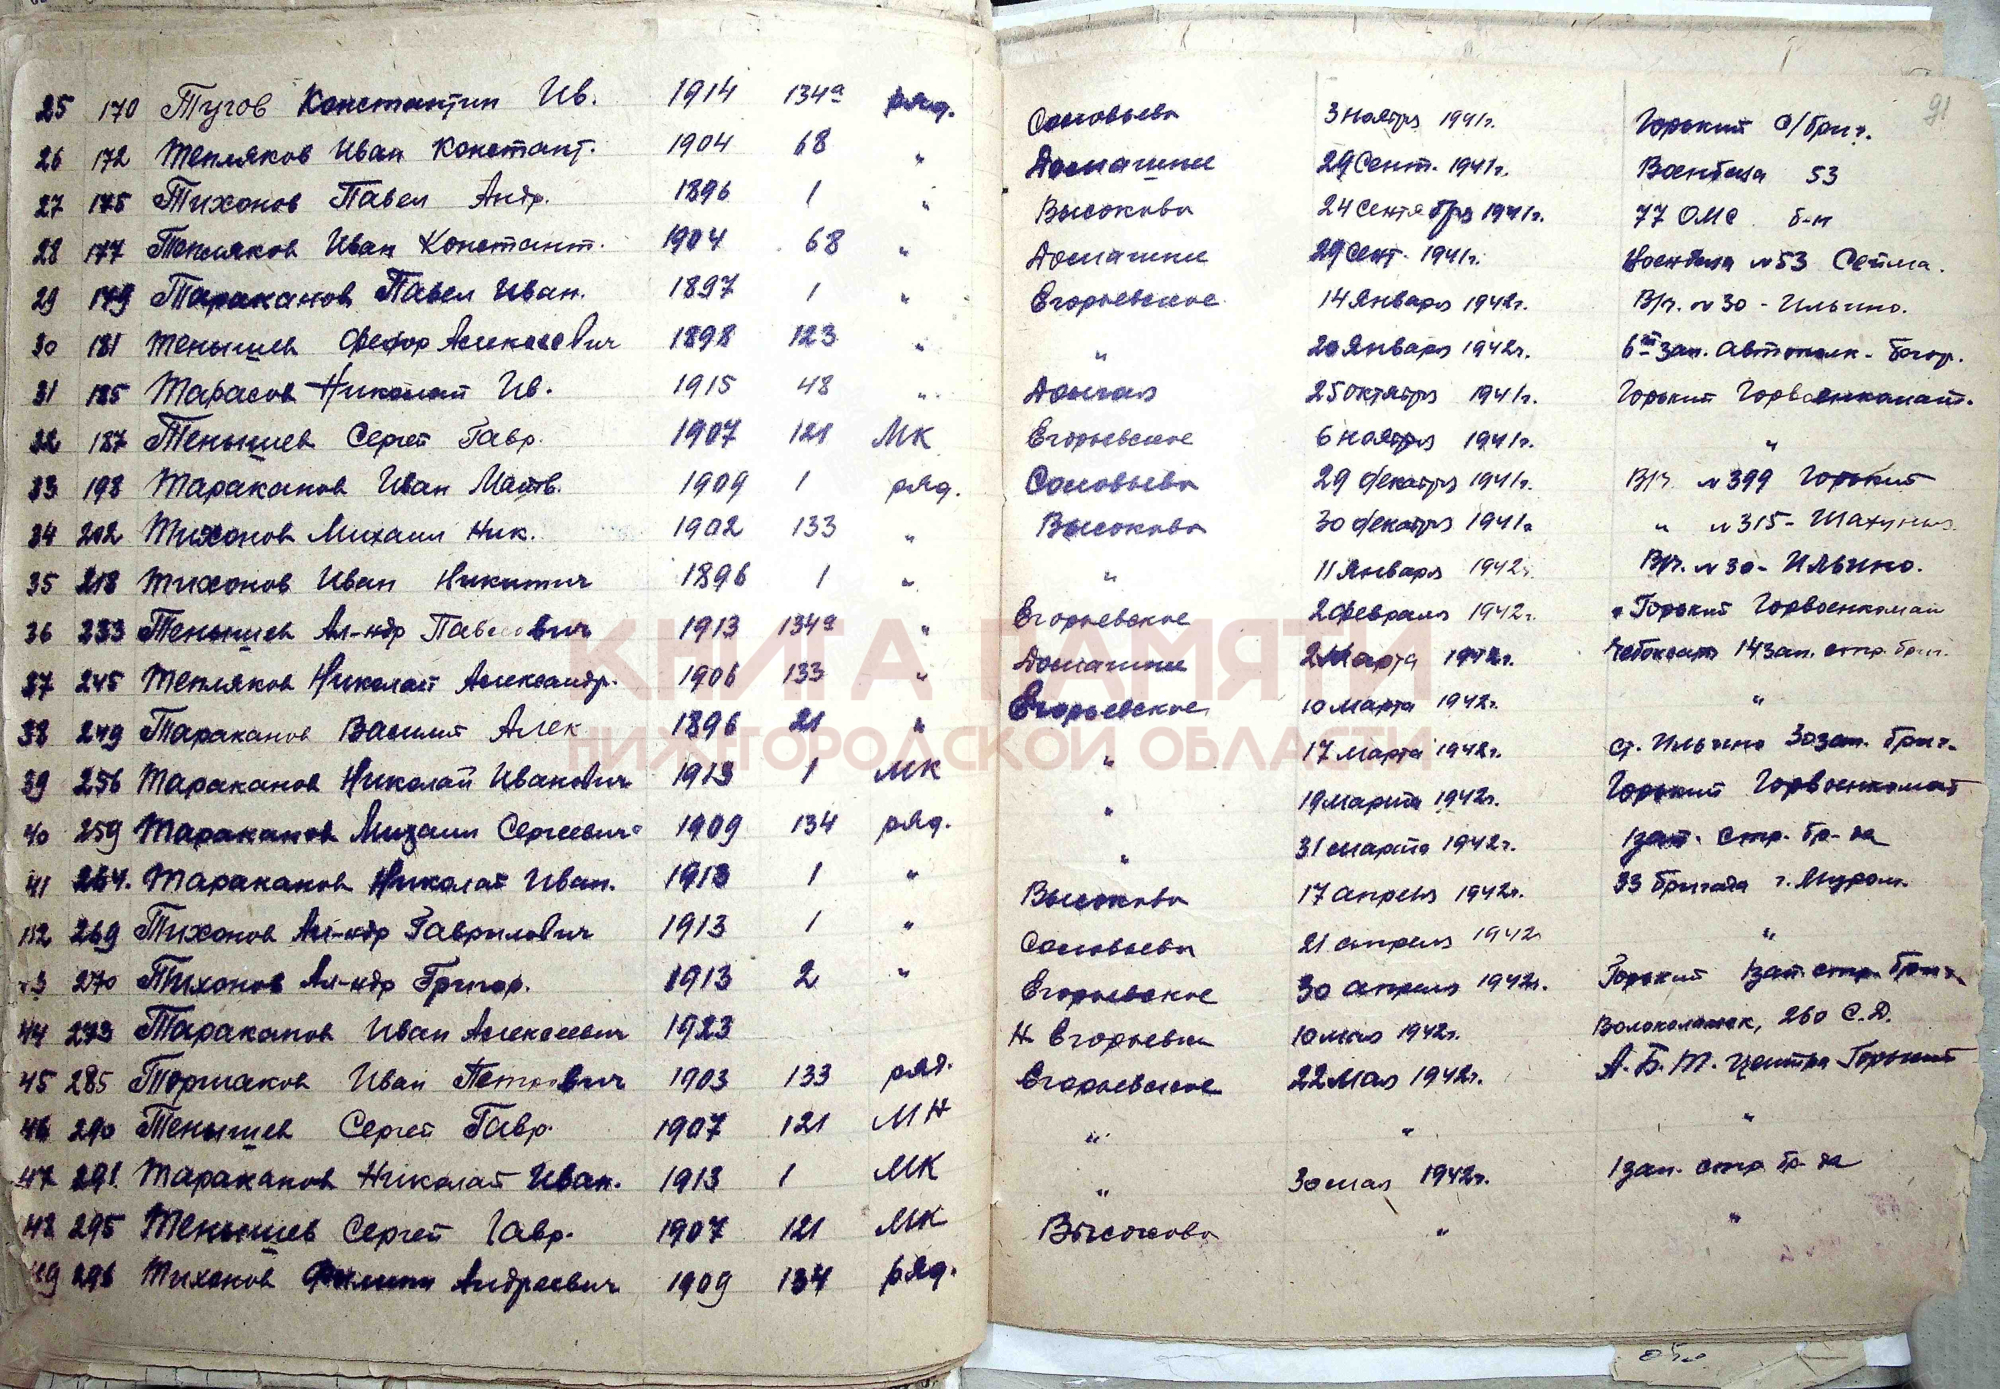 25 170 Тугов Константин Ив. 1914 134а ряд.
26 172 Тепляков Иван Констант. 1904 68 "
27 175 Тихонов Павел Андр. 1896 1 "
28 177 Тепляков Иван Констант. 1904 68 "
29 179 Тараканов Павел Иван. 1897 1 "
30 181 Тенышев Федор Алексеевич 1898 123 "
31 185 Тарасов Николай Ив. 1915 48 "
32 187 Тенышев Сергей Гавр. 1907 121 МК
33 198 Тараканов Иван Матв. 1909 1 ряд.
34 202 Тихонов Михаил Ник. 1902 133 "
35 218 Тихонов Иван Никитич 1896 1 "
36 233 Тенышев Ал-ндр Павлович 1913 134а "
37 245 Тепляков Николай Александр. 1906 133 "
38 249 Тараканов Василий Алек 1896 21 "
39 256 Тараканов Николай Иванович 1913 1 МК
40 259 Тараканов Михаил Сергеевич 1909 134 ряд.
41 264. Тараканов Николай Иван. 1913 1 "
42 269 Тихонов Ал-ндр Гаврилович 1913 1 "
43 270 Тихонов Ал-ндр Григор. 1913 2 "
44 273 Тараканов Иван Алексеевич 1923
45 285 Торшаков Иван Петрович 1903 133 ряд.
46 290 Тенышев Сергей Гавр. 1907 121 МН
47 291. Тараканов Николай Иван. 1913 1 МК
48 295 Тенышев Сергей Гавр. 1907 121 МК
49 296 Тихонов Филипп Андреевич 1909 134 ряд.
91
Соловьево 3 ноября 1941г. Горький С/бриг.
29 Сент. 1941г. Военбаза 53
Высоково 24 сентября 1941г. 77 ОМС б-н
29 Сент. 1941г. Военбаза №53 Сейма.
Егорьевское 14 Января 1942г. В/ч. №30 - Ильино.
" 20 Января 1942г. 6ой зап. автополк - Богор.
25 октября 1941г. Горький Горвоенкомат.
Егорьевское 6 ноября 1941г. "
Соловьево 29 декабря 1941г. В/ч. №399 Горький
Высоково 30 декабря 1941г " №315 - Шахунья
" 11 Января 1942г. В/ч. №30 - Ильино.
Егорьевское 2 февраля 1942г. Горький Горвоенкомат
2 Марта 1942г. Чебоксары 14 зап. стр. бриг.
Егорьевское 10 марта 1942г. "
" 17 марта 1942г. ст. Ильино 30 зап. бриг.
" 19 марта 1942г. Горький Горвоенкомат
" 31 марта 1942г. 1 зап. стр. бр-да
Высоково 17 апреля 1942г. 33 бригада г. Муром.
Соловьево 21 апреля 1942 "
Егорьевское 30 апреля 1942г. Горький 1 зап. стр. бриг.
Н Егорьевка 10 мая 1942г. Волоколамск, 260 С.Д.
Егорьевское 22 мая 1942г. А.Б.Т. центра Горький
" " "
" 30 мая 1942г. 1 зап. стр бр-да
Высоково " "
КНИГА ПАМЯТИ
НИЖЕГОРОДСКОЙ ОБЛАСТИ